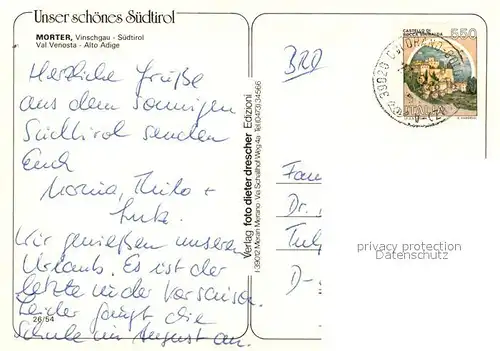 Unser schönes Südtirol
MORTER, Vinschgau - Südtirol
Val Venosta - Alto Adige
Herzliche Grüße
aus dem sonnigen
Südtirol senden
Euch
Thilo +
Wir genießen unseren
Urlaub. Es ist der
letzte in der Vorsaison.
Leider fängt die
Schule im August an.
26/54
Verlag foto dieter drescher Edizioni
I-39012 Meran Merano · Via Schaffhof Weg 4a · Tel. (0473) 34566
BRD
CASTELLO DI
ROCCA SINIBALDA
550
39020
Fam
Dr.
Tulp
D-
privacy protection
© ansichtskarten-center.de